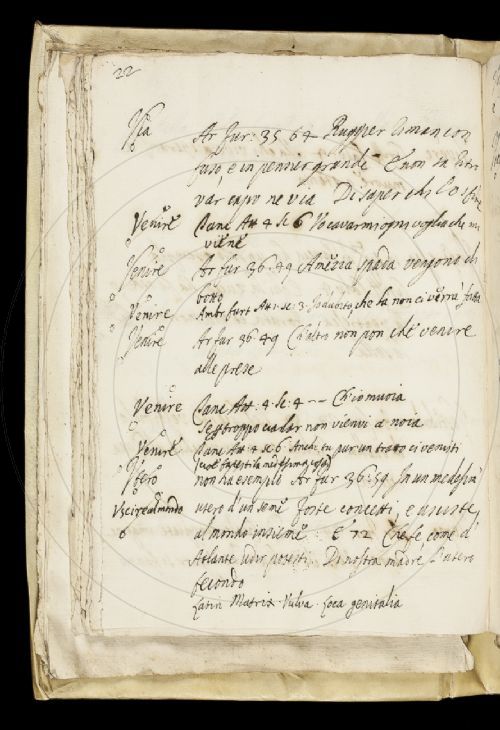 22
Via Ar fur. 35. 64 Rugger riman con
fuso, e in pensier grande E non sa ritro
var capo ne via Di saper chi costui
Venire Dant Att 4 sc 6 vo cavarmi ogni voglia che mi
viene
Venire Ar fur 36. 49 A mezza spada vengono di
botto
Venire Ambr furt Att. sc. 3. che la non ci verrà fatta
Venire Ar fur 36. 49 Ch'altro non pon che venire
alle prese
Venire Att. 4. sc. 4 --- Ch'io muoia
Se troppo a udir non vienvi a noia
Venire Att. 4 sc 6 tu pur un tratto ci venisti
Utero non ha esempio Ar fur 36. 59 In un medesimo
Uscire al mondo utero d'un seme foste concetti, e usciste
al mondo insieme. E 72 Che fe come d'
Atlante udir potesti. Di nostra madre l'utero
fecondo
Latin Matrix. Vulva. Loca genitalia